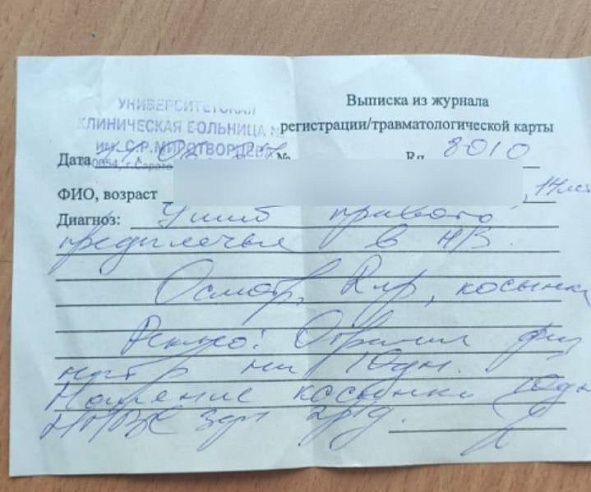 УНИВЕРСИТЕТСКАЯ
КЛИНИЧЕСКАЯ БОЛЬНИЦА №
им. С.Р. МИРОТВОРЦЕВА
Выписка из журнала
регистрации/травматологической карты
Дата № Rg 8010
ФИО, возраст , 14 лет
Диагноз: Ушиб правого
предплечья в н/з.
Осмотр, Rgр, косынка
Огранич физ
нагр на 10дн.
Ношение косынки 10дн